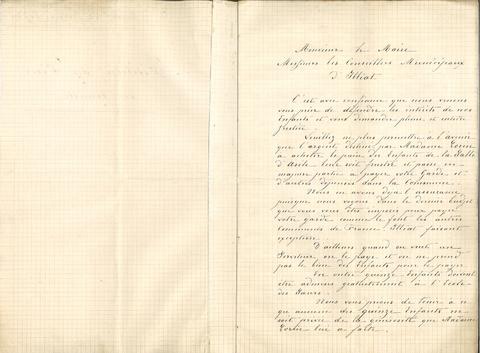 Monsieur le Maire
Messieurs les Conseillers Municipaux
d'Illiat
C'est avec confiance que nous venons
vous prier de défendre les intérêts de nos
Enfants et vous demander pleine et entière
justice.
Veuillez ne plus permettre à l'avenir
que l'argent destiné par Madame
à acheter le pain des Enfants de la Salle
d'Asile leur soit frustré et passe en
majeure partie à payer votre Garde et
d'autres dépenses dans la Commune.
Nous en avons déjà l'assurance
puisque nous voyons dans le dernier budget
que vous vous êtes imposés pour payer
votre garde comme le font les autres
Communes de France. Illiat faisant
exception.
D'ailleurs quand on veut un
Serviteur on le paye et on ne prend
pas le bien des Enfants pour le payer.
En outre quinze Enfants doivent
être admis gratuitement à l'Ecole
des Sœurs.
Nous vous prions de tenir à ce
que aucun des quinze Enfants ne
soit privé de la que Madame
leur a faite.